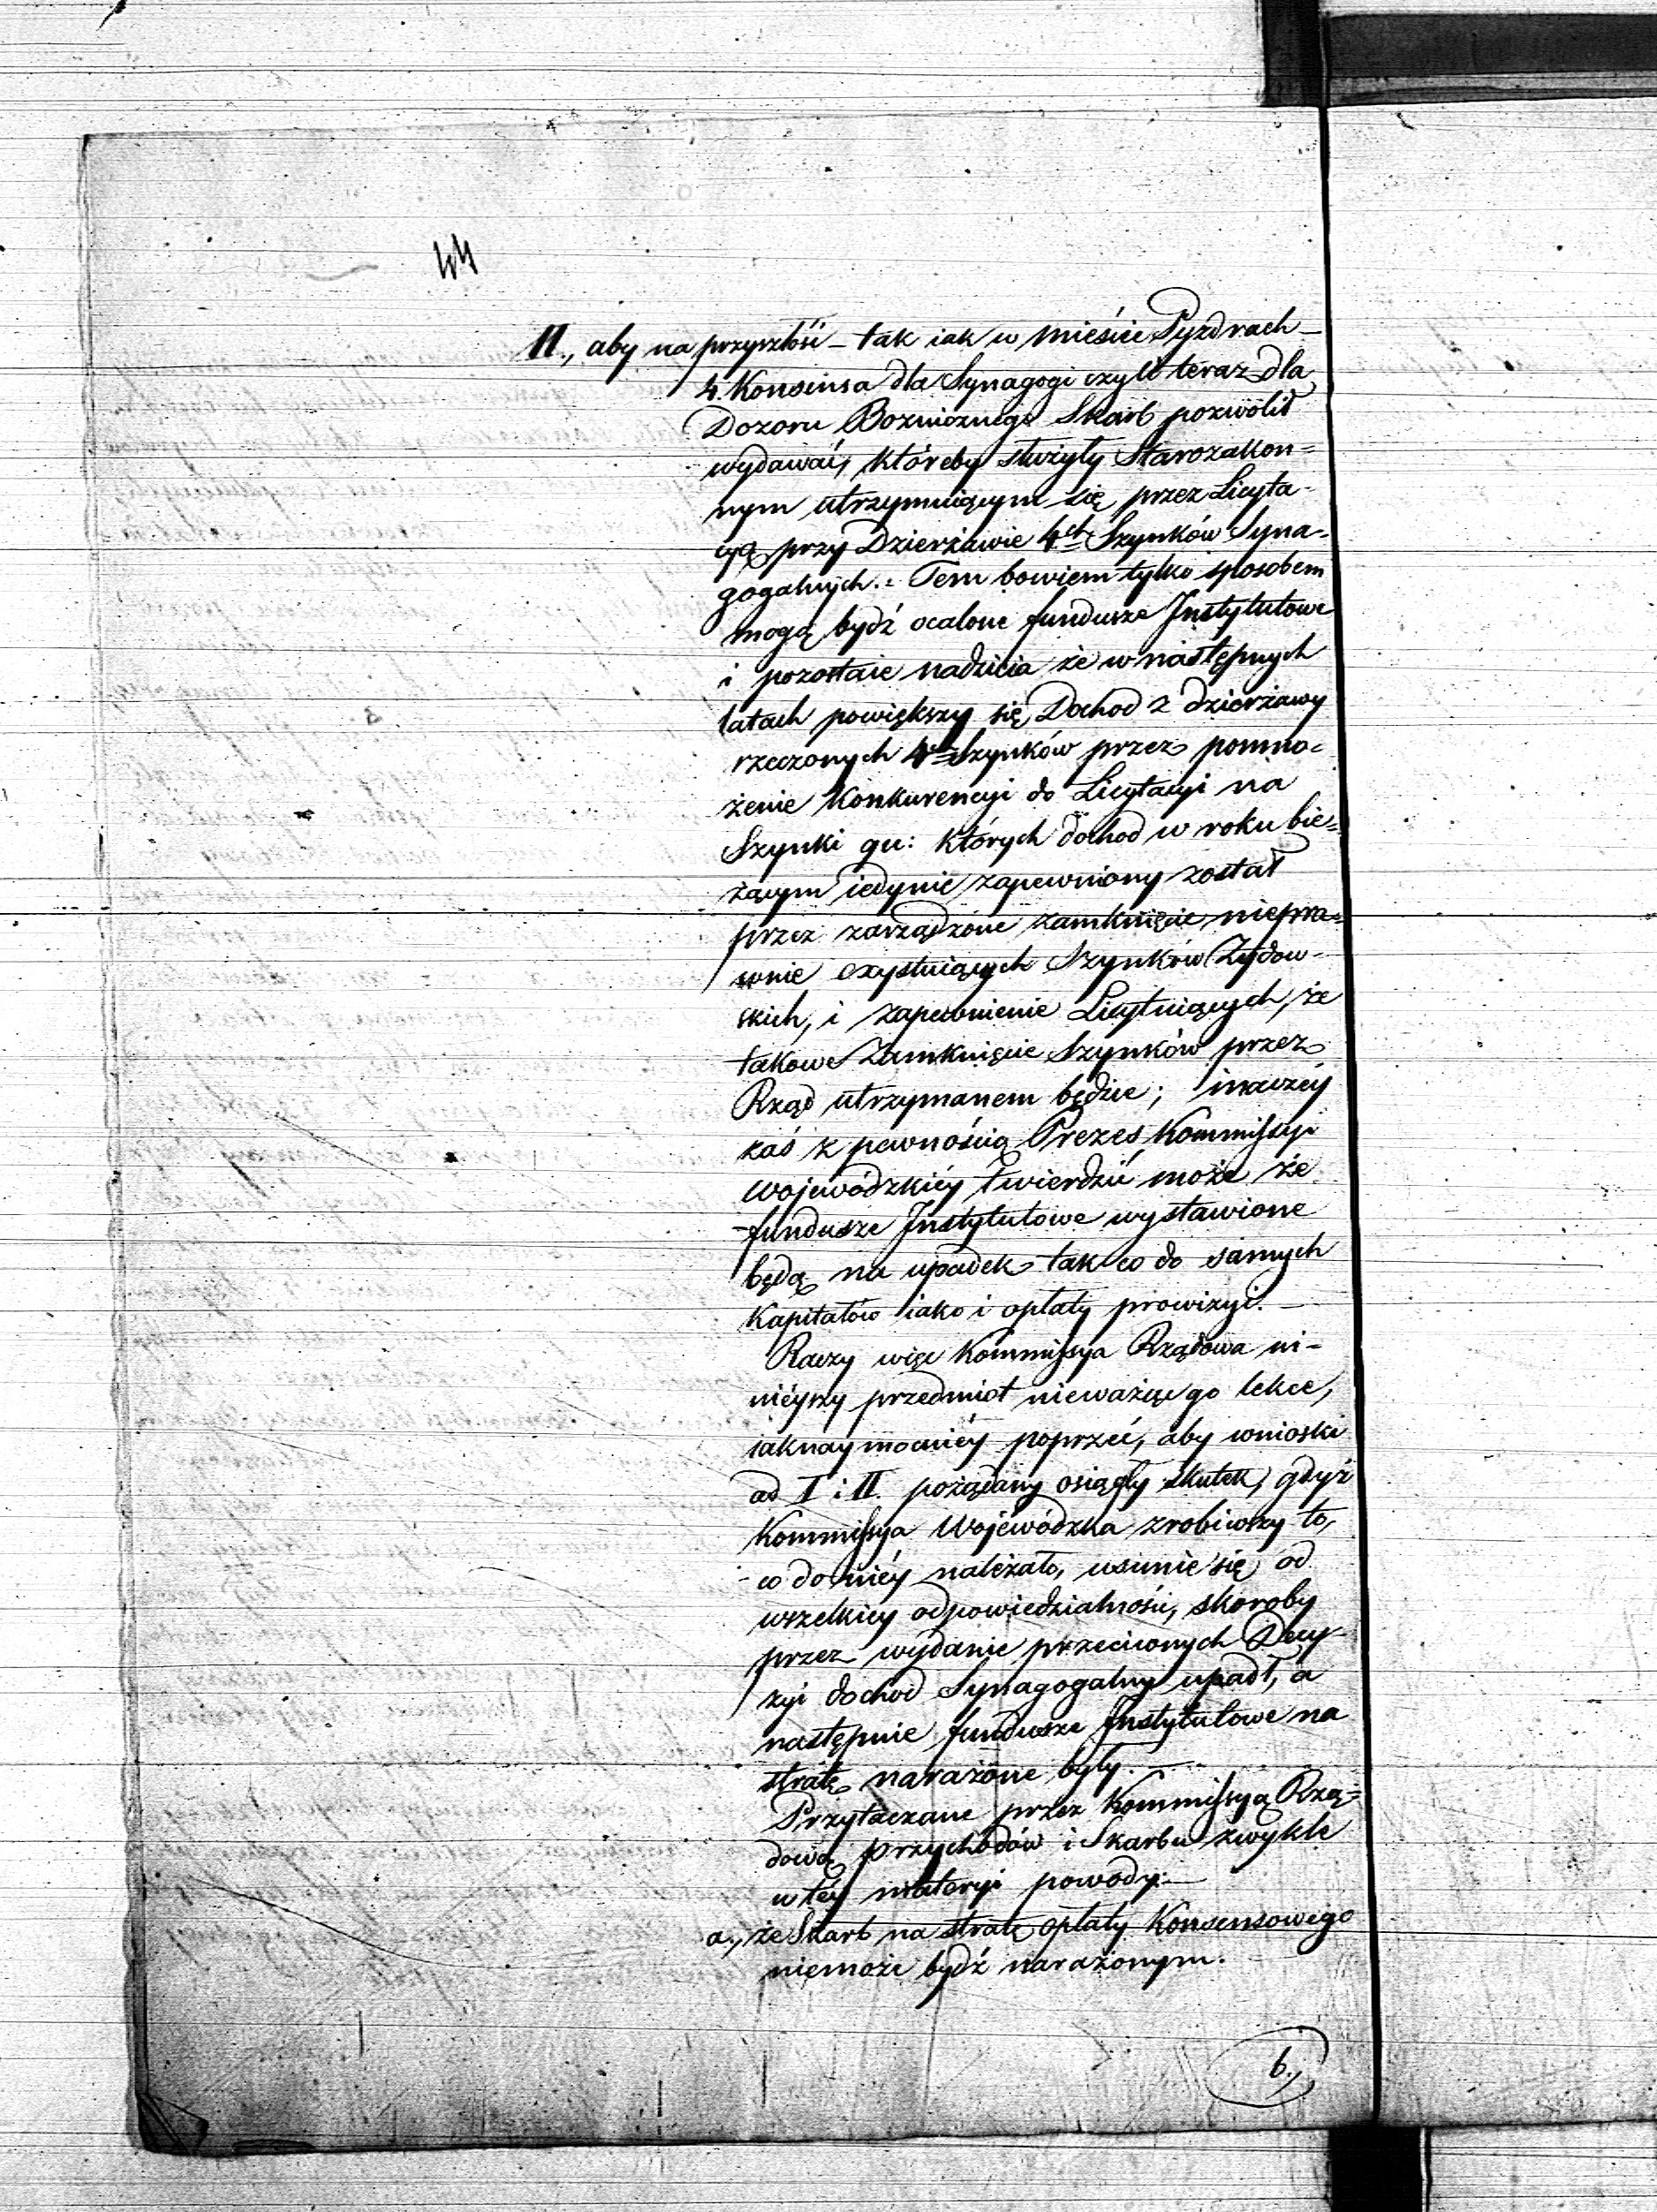 44
II., aby na przyszłość – tak iak w mieście Pyzdrach –
4. Konsensa dla Synagogi czyli teraz dla
Dozoru Boznicznego Skarb pozwolił
wydawać, któreby służyły Starozakon=
nym utrzymuiącym się przez Licyta-
cyą przy Dzierżawie 4ch Szynków Syna-
gogalnych. – Tem bowiem tylko sposobem
mogą bydź ocalone fundusze Instytutowe
i pozostaie nadzieia że w następnych
latach powiększy się Dochod z dzierżawy
rzeczonych 4ch Szynków przez pomno=
żenie Konkurencyi do Licytacyi na
Szynki qu: których dochod w roku bie=
żącym iedynie zapewniony został
przez zarządzone zamknięcie niepra=
wnie exystuiących Szynków Żydow-
skich, i zapewnienie Licytuiących, że
takowe Zamknięcie Szynków przez
Rząd utrzymanem będzie; inaczéy
zaś z pewnością Prezes Kommissyi
Wojewódzkiéy twierdzić może że
fundusze Instytutowe wystawione
będą na upadek tak co do samych
Kapitałów iako i opłaty prowizyi. –
Raczy więc Kommissya Rządowa ni-
nieyszy przedmiot nieważąc go lekce,
iaknaymocniéy poprzeć, aby wnioski
ad I i II. pożądany osiągły skutek, gdyż
Kommissya Wojewódzka zrobiwszy to,
co do niéy należało, usunie się od
wszelkiey odpowiedzialności, skoroby
przez wydanie przeciwnych Decy-
zyi dochod Synagogalny upadł, a
następnie fundusze Instytutowe na
stratę narażone były. –
Przytaczane przez Kommissyą Rzą=
dową Przychodów i Skarbu zwykle
w téy materyi powody: –
a., że Skarb na stratę opłaty Konsensowego
niemoże bydź narażonym.
b.,